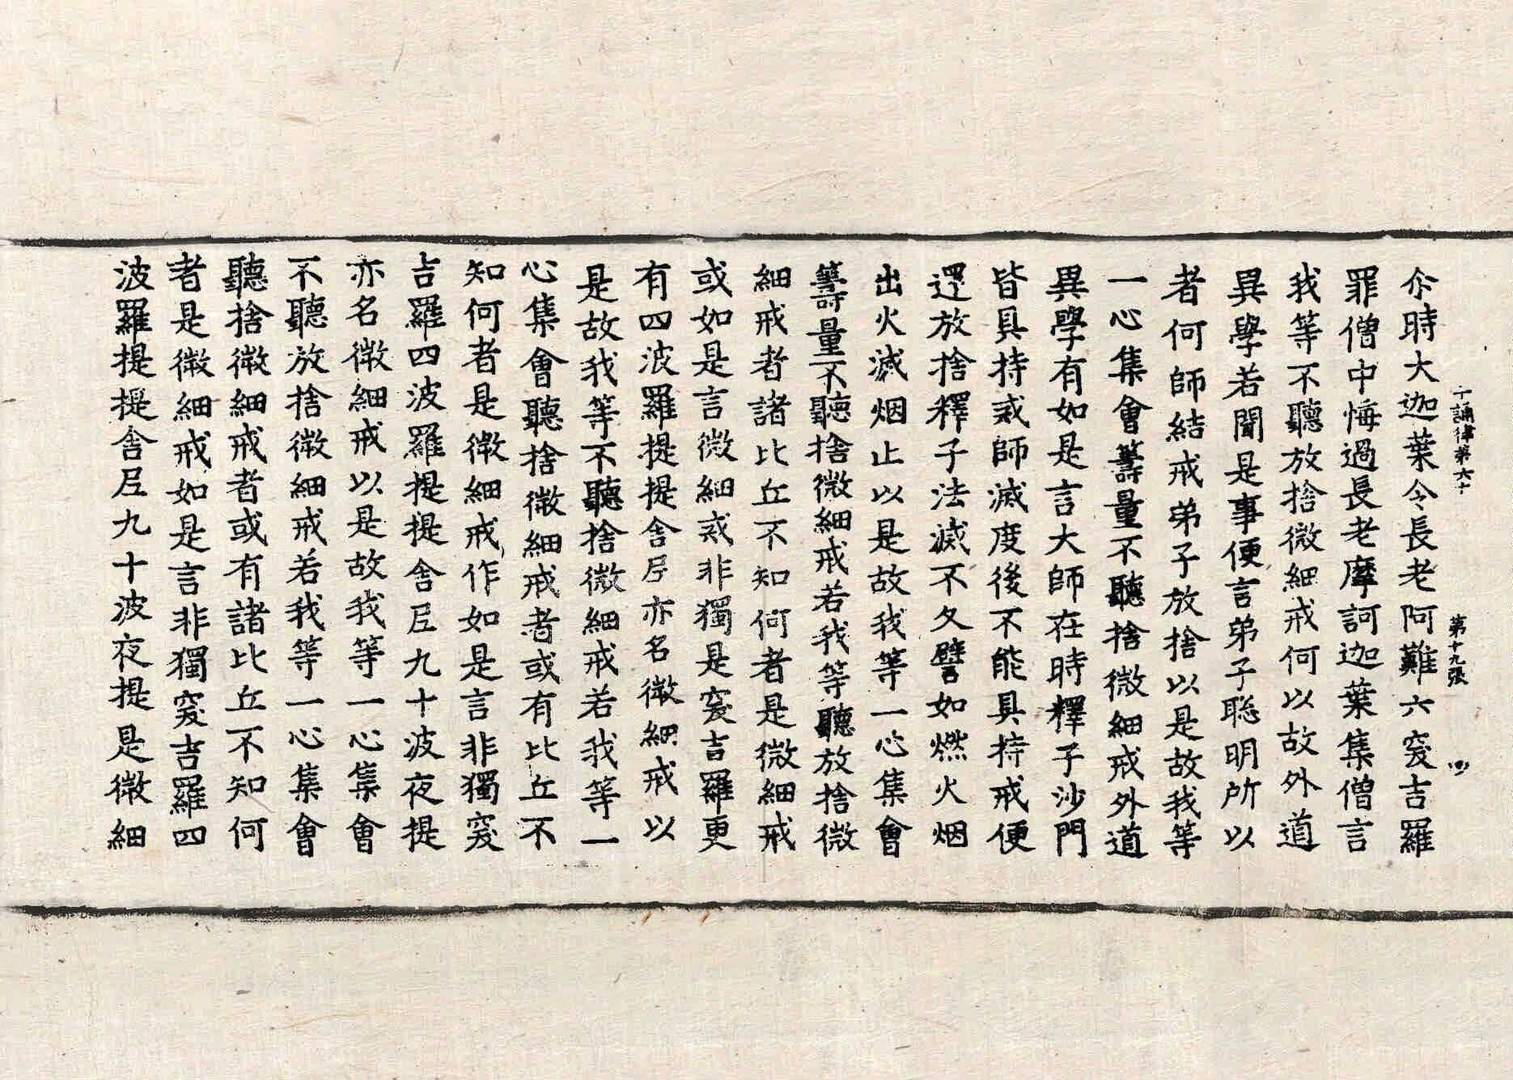 十誦律第六十 第十九張 四
尒時大迦葉令長老阿難六突吉羅
罪僧中悔過長老摩訶迦葉集僧言
我等不聽放捨微細戒何以故外道
異學若聞是事便言弟子聡明所以
者何師結戒弟子放捨以是故我等
一心集會籌量不聽捨微細戒外道
異學有如是言大師在時釋子沙門
皆具持戒師滅度後不能具持戒便
還放捨釋子法滅不久譬如燃火烟
出火滅烟止以是故我等一心集會
籌量不聽捨微細戒若我等聽放捨微
細戒者諸比丘不知何者是微細戒
或如是言微細戒非獨是突吉羅更
有四波羅提提舍尼亦名微細戒以
是故我等不聽捨微細戒若我等一
心集會聽捨微細戒者或有比丘不
知何者是微細戒作如是言非獨突
吉羅四波羅提提舍尼九十波夜提
亦名微細戒以是故我等一心集會
不聽放捨微細戒若我等一心集會
聽捨微細戒者或有諸比丘不知何
者是微細戒如是言非獨突吉羅四
波羅提提舍尼九十波夜提是微細